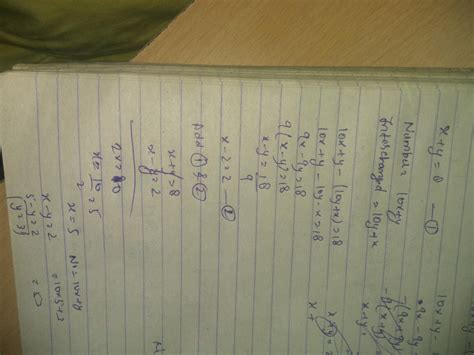 x+y = 8 — ①
Number = 10x+y
Interchanged = 10y+x
10x+y - (10y+x) = 18
10x+y - 10y - x = 18
9x-9y = 18
9(x-y) = 18
x-y = 18/9
x-y = 2 — ②
Add ① & ②
x+y = 8
x-y = 2
2x = 10
x = 10/2 = 5
x = 5
x-y = 2
5-y = 2
y = 3
No = 10x+y
= 10x5+3
10x+y-
9x-9y
x+y